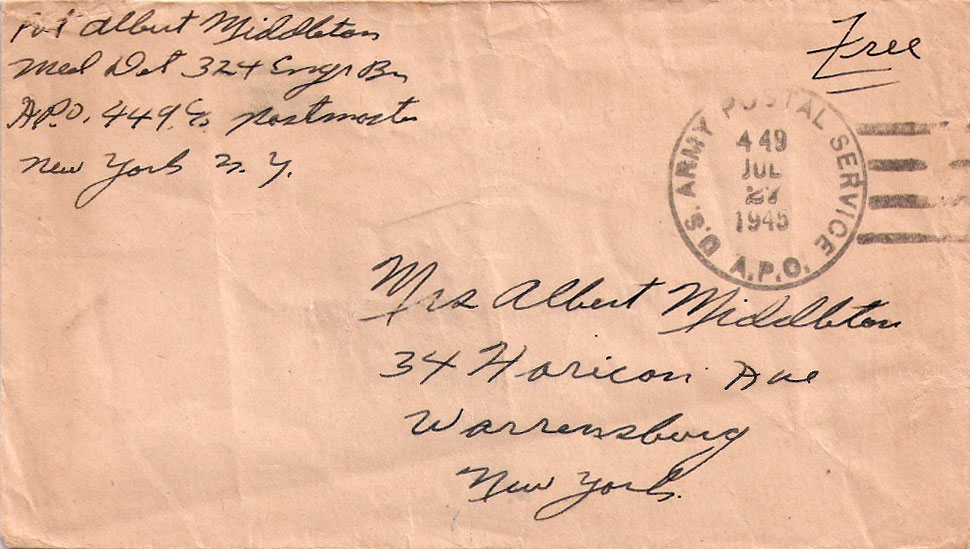 Pvt Albert Middleton
Med Det 324 Engr Bn
A.P.O. 449 % Postmaster
New York N.Y.
Free
U.S. ARMY POSTAL SERVICE
449
JUL
27
1945
A.P.O.
Mrs Albert Middleton
34 Horicon Ave
Warrensburg
New York.